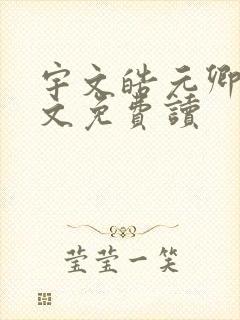 宇文皓元卿
文免費讀
莹莹一笑